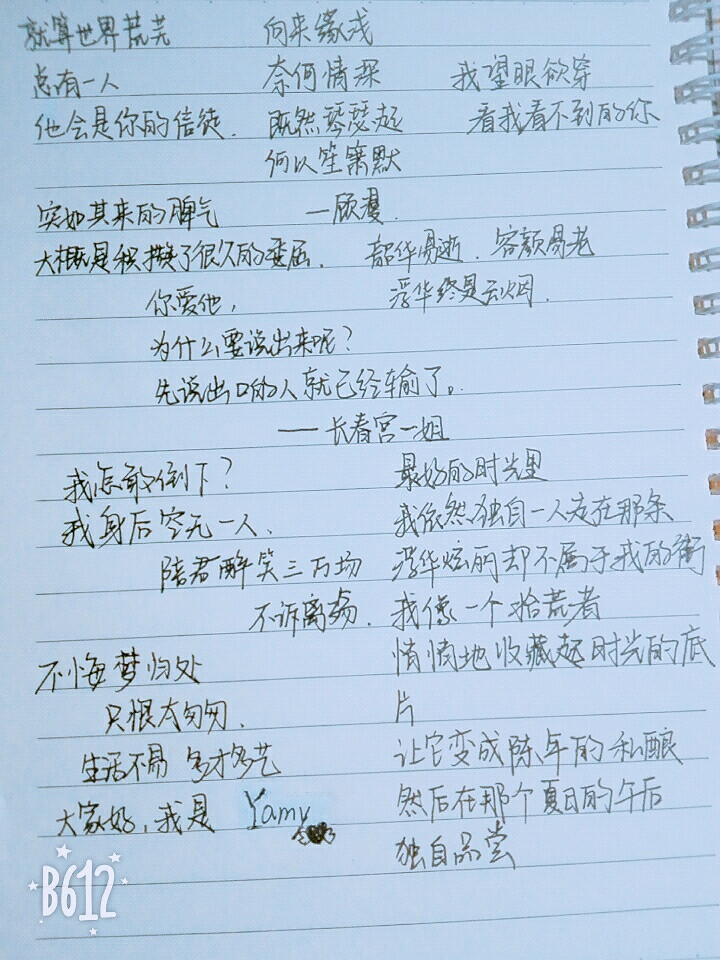 就算世界荒芜
总有一人
他会是你的信徒.
向来缘浅
奈何情深
既然琴瑟起
何以笙箫默
—顾漫.
我望眼欲穿
看我看不到的你
突如其来的脾气
大概是积攒了很久的委屈.
韶华易逝.容颜易老
浮华终是云烟.
你爱他,
为什么要说出来呢?
先说出口的人就已经输了。
——长春宫一姐
我怎敢倒下?
我身后空无一人.
陪君醉笑三万场
不诉离殇.
不悔梦归处
只恨太匆匆.
生活不易 多才多艺
大家好,我是 Yamy
最好的时光里
我依然独自一人走在那条
浮华炫丽却不属于我的街
我像一个拾荒者
悄悄地收藏起时光的底
片
让它变成陈年的私酿
然后在那个夏日的午后
独自品尝
B612